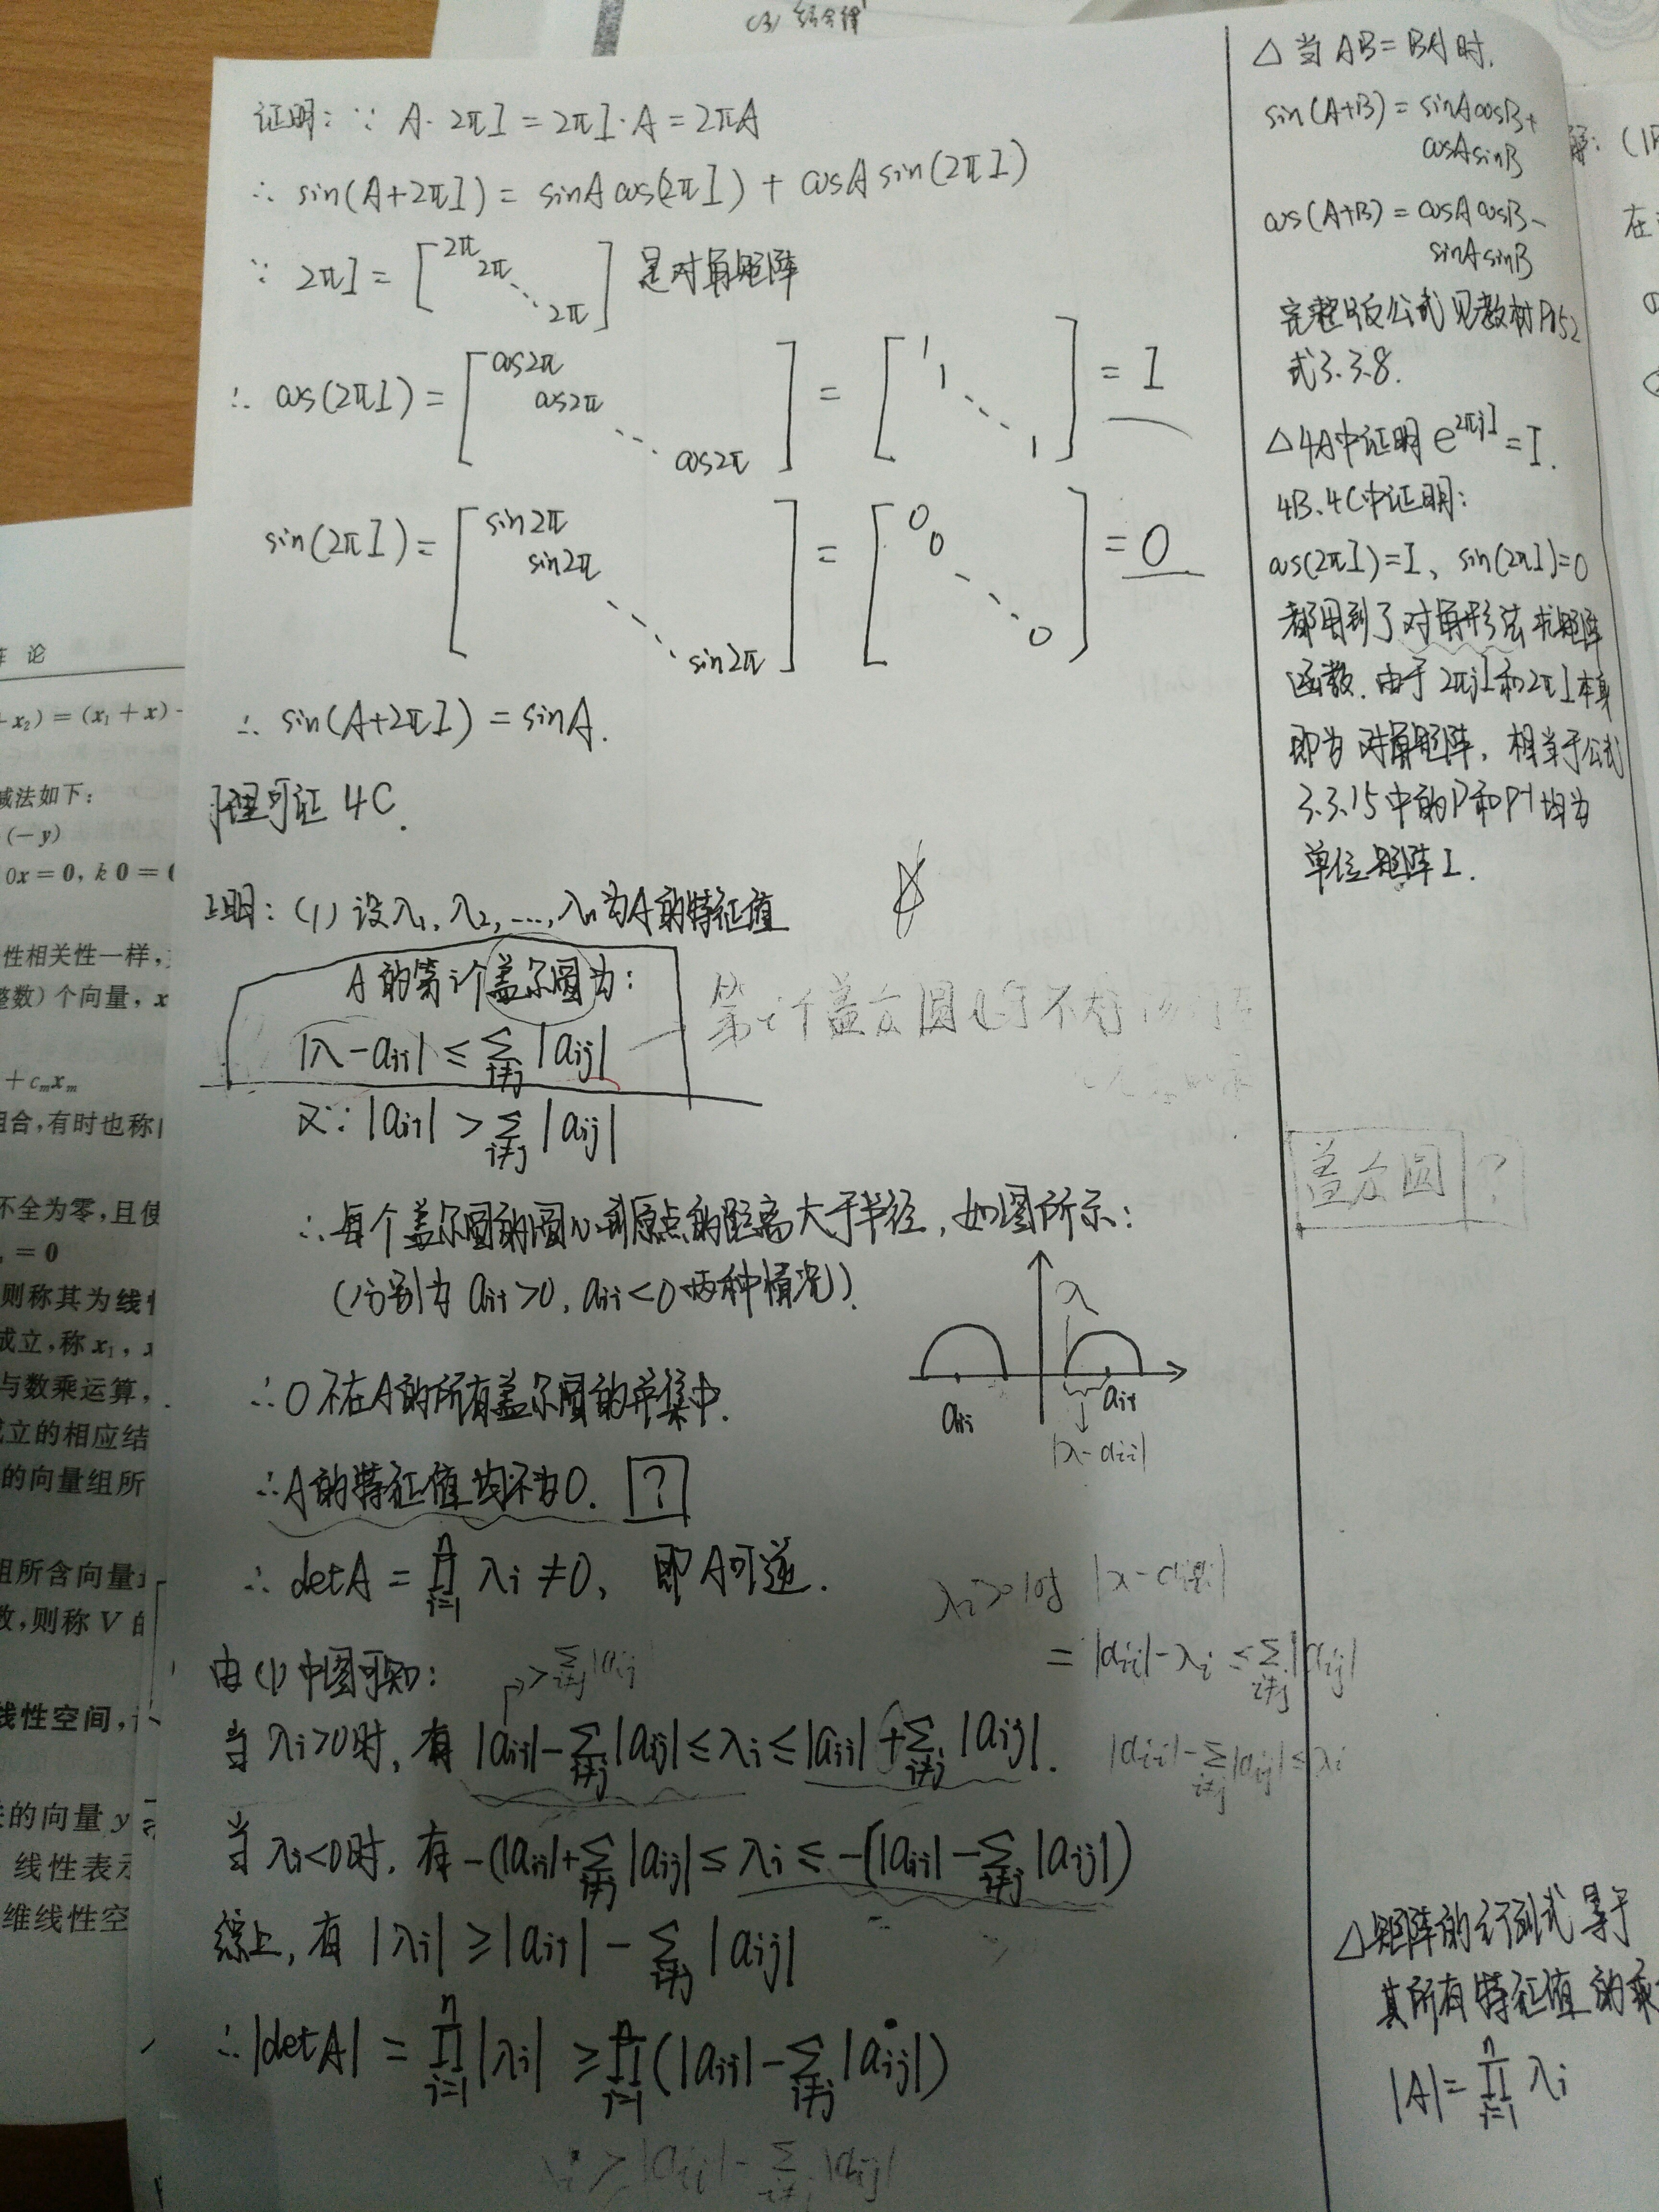 (3) 结合律
证明：∵ A·2πI = 2πI·A = 2πA
∴ sin(A+2πI) = sinA cos(2πI) + cosA sin(2πI)
∵ 2πI = [2π 2π ⋱ 2π] 是对角矩阵
∴ cos(2πI) = [cos2π cos2π ⋱ cos2π] = [1 1 ⋱ 1] = I
sin(2πI) = [sin2π sin2π ⋱ sin2π] = [0 0 ⋱ 0] = 0
∴ sin(A+2πI) = sinA.
理可证 4C.
明：(1) 设λ₁, λ₂, …, λn为A的特征值
A的第i个盖尔圆为：
|λ-aii| ≤ Σ_{i≠j} |aij|
第i个盖尔圆
又∵ |aii| > Σ_{i≠j} |aij|
∴ 每个盖尔圆的圆心到原点的距离大于半径, 如图所示：
(分别为 aii>0, aii<0 两种情况).
λ
aii
aii
|λ-aii|
∴ 0不在A的所有盖尔圆的并集中.
∴ A的特征值均不为0. ?
∴ detA = ∏_{i=1}^{n} λi ≠ 0, 即A可逆.
λi>0时 |λ-aii|
= |aii|-λi ≤ Σ_{i≠j} |aij|
由(1)中图可知：
> Σ_{i≠j} |aij|
当λi>0时, 有 |aii| - Σ_{i≠j} |aij| ≤ λi ≤ |aii| + Σ_{i≠j} |aij|.
|aii| - Σ_{i≠j} |aij| ≤ λi
当λi<0时, 有 -(|aii| + Σ_{i≠j} |aij| ≤ λi ≤ -(|aii| - Σ_{i≠j} |aij|)
综上, 有 |λi| ≥ |aii| - Σ_{i≠j} |aij|
∴ |detA| = ∏_{i=1}^{n} |λi| ≥ ∏_{i=1}^{n} (|aii| - Σ_{i≠j} |aij|)
λi > |aii| - Σ_{i≠j} |aij|
△当AB=BA时.
sin(A+B) = sinAcosB+
cosAsinB
cos(A+B) = cosAcosB-
sinAsinB
完整版公式见教材P152
式3.3.8.
△4A中证明 e^{2πjI} = I.
4B、4C中证明：
cos(2πI)=I、sin(2πI)=0
都用到了对角形法求矩阵
函数. 由于2πjI和2πI本身
即为对角矩阵, 相当于公式
3.3.15中的P和P⁻¹均为
单位矩阵I.
盖尔圆 ?
△矩阵的行列式等于
其所有特征值的乘
|A| = ∏_{i=1}^{n} λi
解：(1)
在
阵 论
+ x₂) = (x₁ + x) -
减法如下：
(-y)
0x = 0, k0 =
性相关性一样,
整数)个向量, x
+ cₘxₘ
组合,有时也称
不全为零,且使
= 0
则称其为线性
成立,称 x₁,
与数乘运算,
成立的相应结
的向量组所
组所含向量
数,则称 V 的
线性空间,
的向量 y
线性表示
维线性空